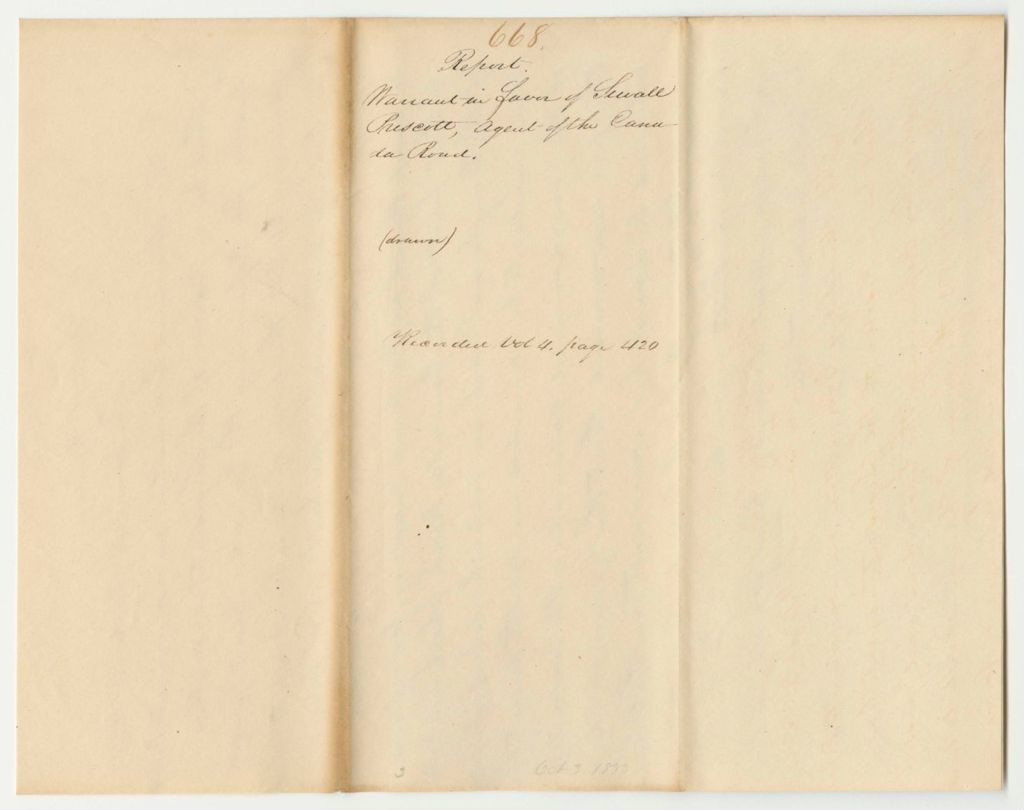 668.
Report.
Warrant in favor of Sewall
Prescott, Agent of the Cana
da Road.
(drawn)
Recorded Vol 4. page 420
3 Oct 3